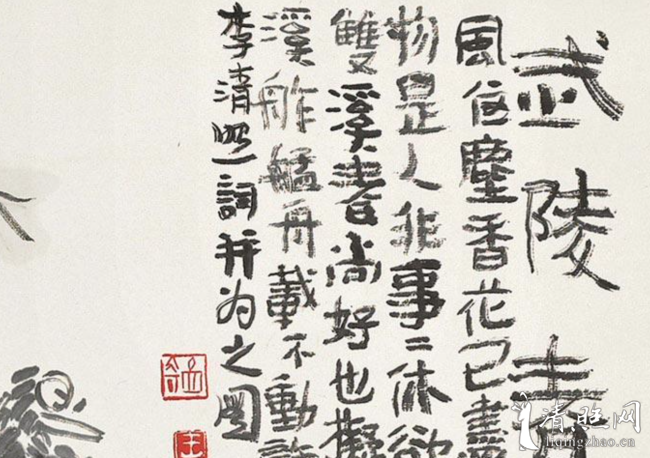 武陵春
風住塵香花已盡
物是人非事二休欲
雙溪春尚好也擬
溪舴艋舟載不動許
李清照詞并为之圖
清旺网